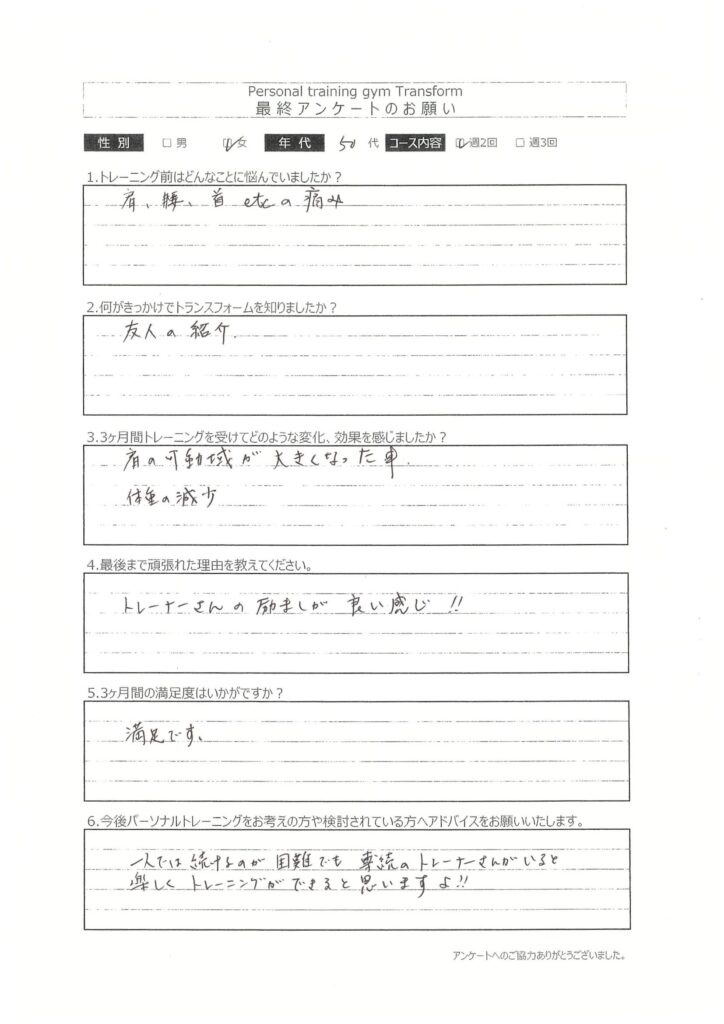 Personal training gym Transform
最終アンケートのお願い
性別 □男 ☑女 年代 50代 コース内容 ☑週2回 □週3回
1.トレーニング前はどんなことに悩んでいましたか？
肩、腰、首 etcの痛み
2.何がきっかけでトランスフォームを知りましたか？
友人の紹介.
3.3ヶ月間トレーニングを受けてどのような変化、効果を感じましたか？
肩の可動域が大きくなった事.
体重の減少
4.最後まで頑張れた理由を教えてください。
トレーナーさんの励ましが良い感じ!!
5.3ヶ月間の満足度はいかがですか？
満足です。
6.今後パーソナルトレーニングをお考えの方や検討されている方へアドバイスをお願いいたします。
一人では続けるのが困難でも専続のトレーナーさんがいると
楽しくトレーニングができると思いますよ!!
アンケートへのご協力ありがとうございました。